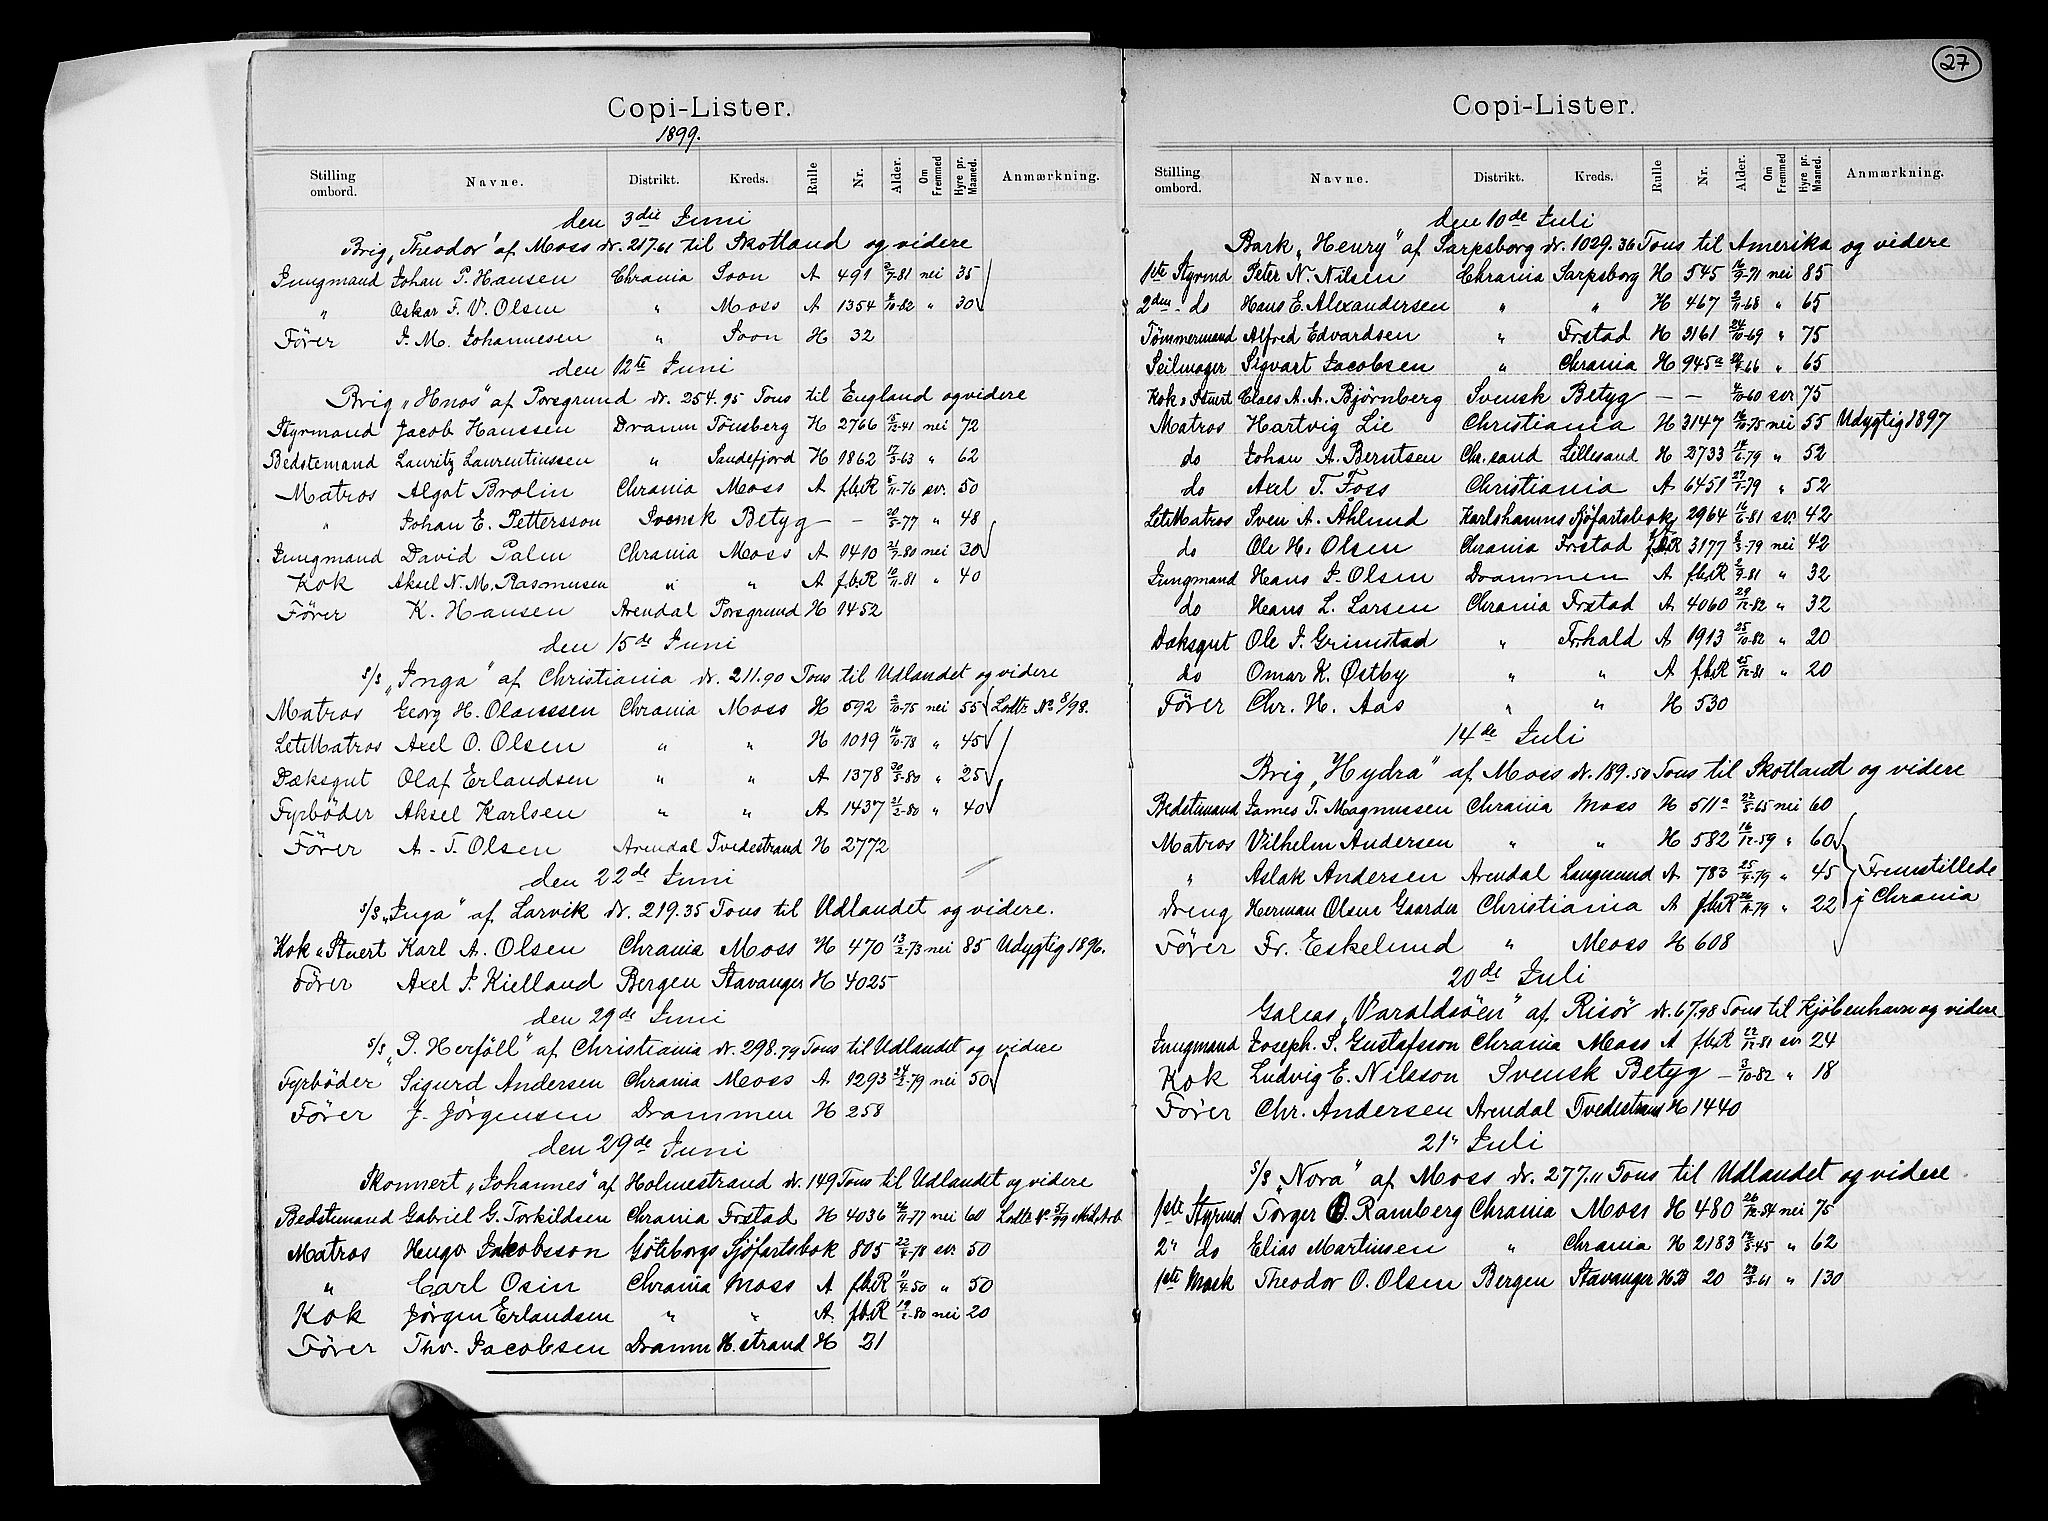 Copi-Lister.
1899.
Stilling ombord. Navne. Distrikt. Kreds. Rulle Nr. Alder. Om Fremmed Hyre pr. Maaned. Anmærkning.
den 3die Juni
Brig "Theodor" af Moss dr. 217.61 til Skotland og videre
Jungmand Johan P. Hansen Chrania Soon A 491 nei 35
" Oskar F. V. Olsen " Moss A 1354 " 30
Förer J. M. Johannesen " Soon H 32
den 12te Juni
Brig "Hnos" af Porsgrund dr. 254.95 Tons til England og videre
Styrmand Jacob Hanssen Dramm Tönsberg H 2766 nei 72
Bedstemand Lauritz Laurentiussen " Sandefjord H 1862 " 62
Matros Algot Brolin Chrania Moss A f.b.R sv. 50
" Johan E. Pettersson Svensk Betyg — — 20/5-77 " 48
Jungmand David Palm Chrania Moss A 1410 nei 30
Kok Aksel N. M. Rasmusen " " A f.b.R 10/11-81 " 40
Förer K. Hansen Arendal Porsgrund H 1452
den 15de Juni
S/S "Inga" af Christiania dr. 211.90 Tons til Udlandet og videre
Matros Georg H. Olaussen Chrania Moss H 592 2/10-75 nei 55 Lodtr. No 8/98.
LetMatros Axel O. Olsen " " H 1019 16/10-78 " 45
Dæksgut Olaf Erlandsen " " A 1378 30/5-80 " 25
Fyrböder Aksel Karlsen " " A 1437 21/2-80 " 40
Förer A. T. Olsen Arendal Tvedestrand H 2772
den 22de Juni
S/S "Inga" af Larvik dr. 219.35 Tons til Udlandet og videre.
Kok & Stuert Karl A. Olsen Chrania Moss H 470 13/2-73 nei 85 Udygtig 1896.
Förer Axel J. Kielland Bergen Stavanger H 4025
den 29de Juni
S/S "P. Herföll" af Christiania dr. 298.79 Tons til Udlandet og videre
Fyrböder Sigurd Andersen Chrania Moss A 1293 24/2-79 nei 50
Förer J. Jörgensen Drammen H 258
den 29de Juni
Skonnert "Johannes" af Holmestrand dr. 149 Tons til Udlandet og videre
Bedstemand Gabriel G. Torkildsen Chrania Frstad H 4036 26/11-77 nei 60 Lodtr. No 5/99
Matros Hugo Jakobsson Göteborgs Sjöfartsbok 805 22/4-78 sv. 50
" Carl Osin Chrania Moss A f.b.R 11/4-50 " 50
Kok Jörgen Erlandsen " " A. f.b.R 19/1-80 nei 20
Förer Thv. Jacobsen Dramm H.strand H 21
27
Copi-Lister.
Stilling ombord. Navne. Distrikt. Kreds. Rulle Nr. Alder. Om Fremmed Hyre pr. Maaned. Anmærkning.
den 10de Juli
Bark "Henry" af Sarpsborg dr. 1029.36 Tons til Amerika og videre
1ste Styrmd Peter N. Nilsen Chrania Sarpsborg H 545 16/9-71 nei 85
2den do Hans E. Alexandersen " " H 467 2/11-68 " 65
Tömmermand Alfred Edvardsen " Frstad H 2161 24/10-69 " 75
Seilmager Sigvart Jacobsen " Chrania H 945a " 65
Kok & Stuert Claes A. A. Bjørnberg Svensk Betyg — — sv. 75
Matros Hartvig Lie Christiania H 3147 16/10-75 nei 55 Udygtig 1897
do Johan A. Berntsen Chr.sand Lillesand H 2733 " 52
do Axel T. Foss Christiania A 6451 27/1-79 " 52
LetMatros Sven A. Åhlund Karlshamns Sjöfartsbok 2964 sv. 42
do Ole H. Olsen Chrania Frstad 3177 nei 42
Jungmand Hans J. Olsen Drammen A f.b.R " 32
do Hans L. Larsen Chrania Frstad A 4060 29/12-82 " 32
Dæksgut Ole J. Grimstad " Frhald A 1913 25/10-82 " 20
do Omar K. Østby " " A f.b.R 25/12-81 " 20
Förer Chr. H. Aas " " H 530
14de Juli
Brig "Hydra" af Moss dr. 189.50 Tons til Skotland og videre
Bedstemand James T. Magnussen Chrania Moss H 511a 22/5-65 nei 60
Matros Vilhelm Andersen " " H 582 16/12-59 " 60
" Aslak Andersen Arendal Langesund A 783 25/4-79 " 45 Fremstillede
Dreng Herman Olsen Gaarder Christiania A f.b.R " 22 i Chrania
Förer Fr. Eskelund " Moss H 608
20de Juli
Galeas "Varaldsöen" af Risör dr. 67.98 Tons til Kjöbenhavn og videre
Jungmand Joseph. S. Gustafsson Chrania Moss A f.b.R sv 24
Kok Ludvig E. Nilsson Svensk Betyg — 3/10-82 " 18
Förer Chr. Andersen Arendal Tvedestrand H 1440
21" Juli
S/S "Nora" af Moss dr. 277." Tons til Udlandet og videre.
1ste Styrmd Torger O. Ramberg Chrania Moss H 480 26/12-54 nei 75
2" do Elias Martinsen " Chrania H 2183 " 62
1ste Mask Theodor O. Olsen Bergen Stavanger H.B 20 " 130